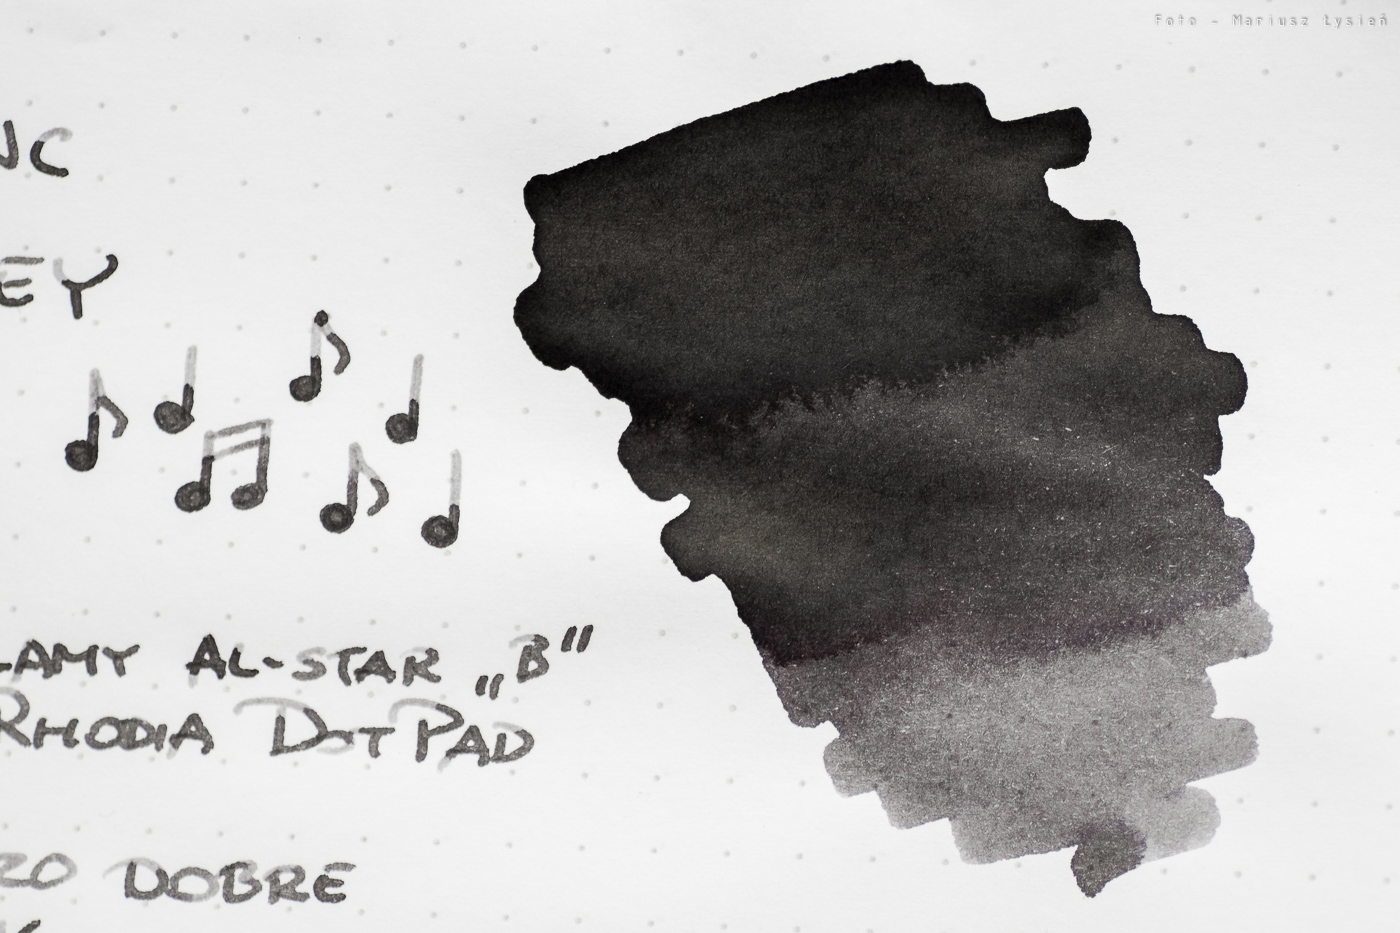 Foto - Mariusz Łysień
NC
EY
LAMY AL-STAR „B”
RHODIA DOT PAD
RZO DOBRE